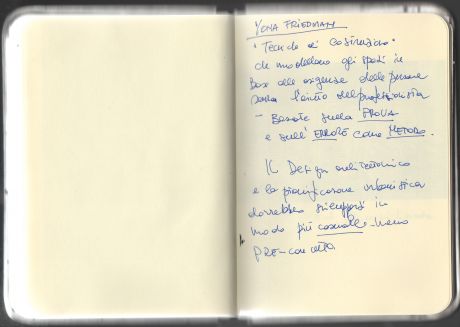 YONA FRIEDMAN
"Tecniche di Costruzione"
che modellano gli spazi in
Base alle esigenze delle persone
senza l'aiuto del professionista
- Basate sulla PROVA
e sull'ERRORE come METODO.
Il Design architettonico
e la pianificazione urbanistica
dovrebbero svilupparsi in
modo più casuale - meno
PRE-concetto.